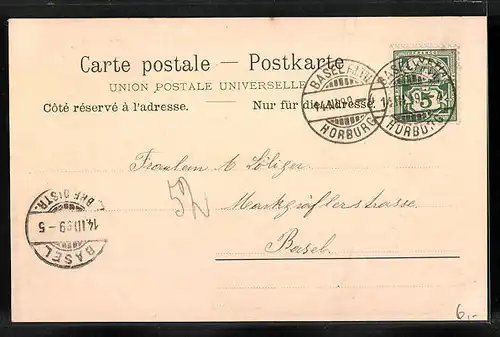 Carte postale — Postkarte
UNION POSTALE UNIVERSELLE
Côté réservé à l'adresse. Nur für die Adresse.
BASEL
HORBURG
BASEL
HORBURG
5
Fräulein A
52
Markgräflerstrasse.
Basel.
14.III.99-5
BASEL
6,-